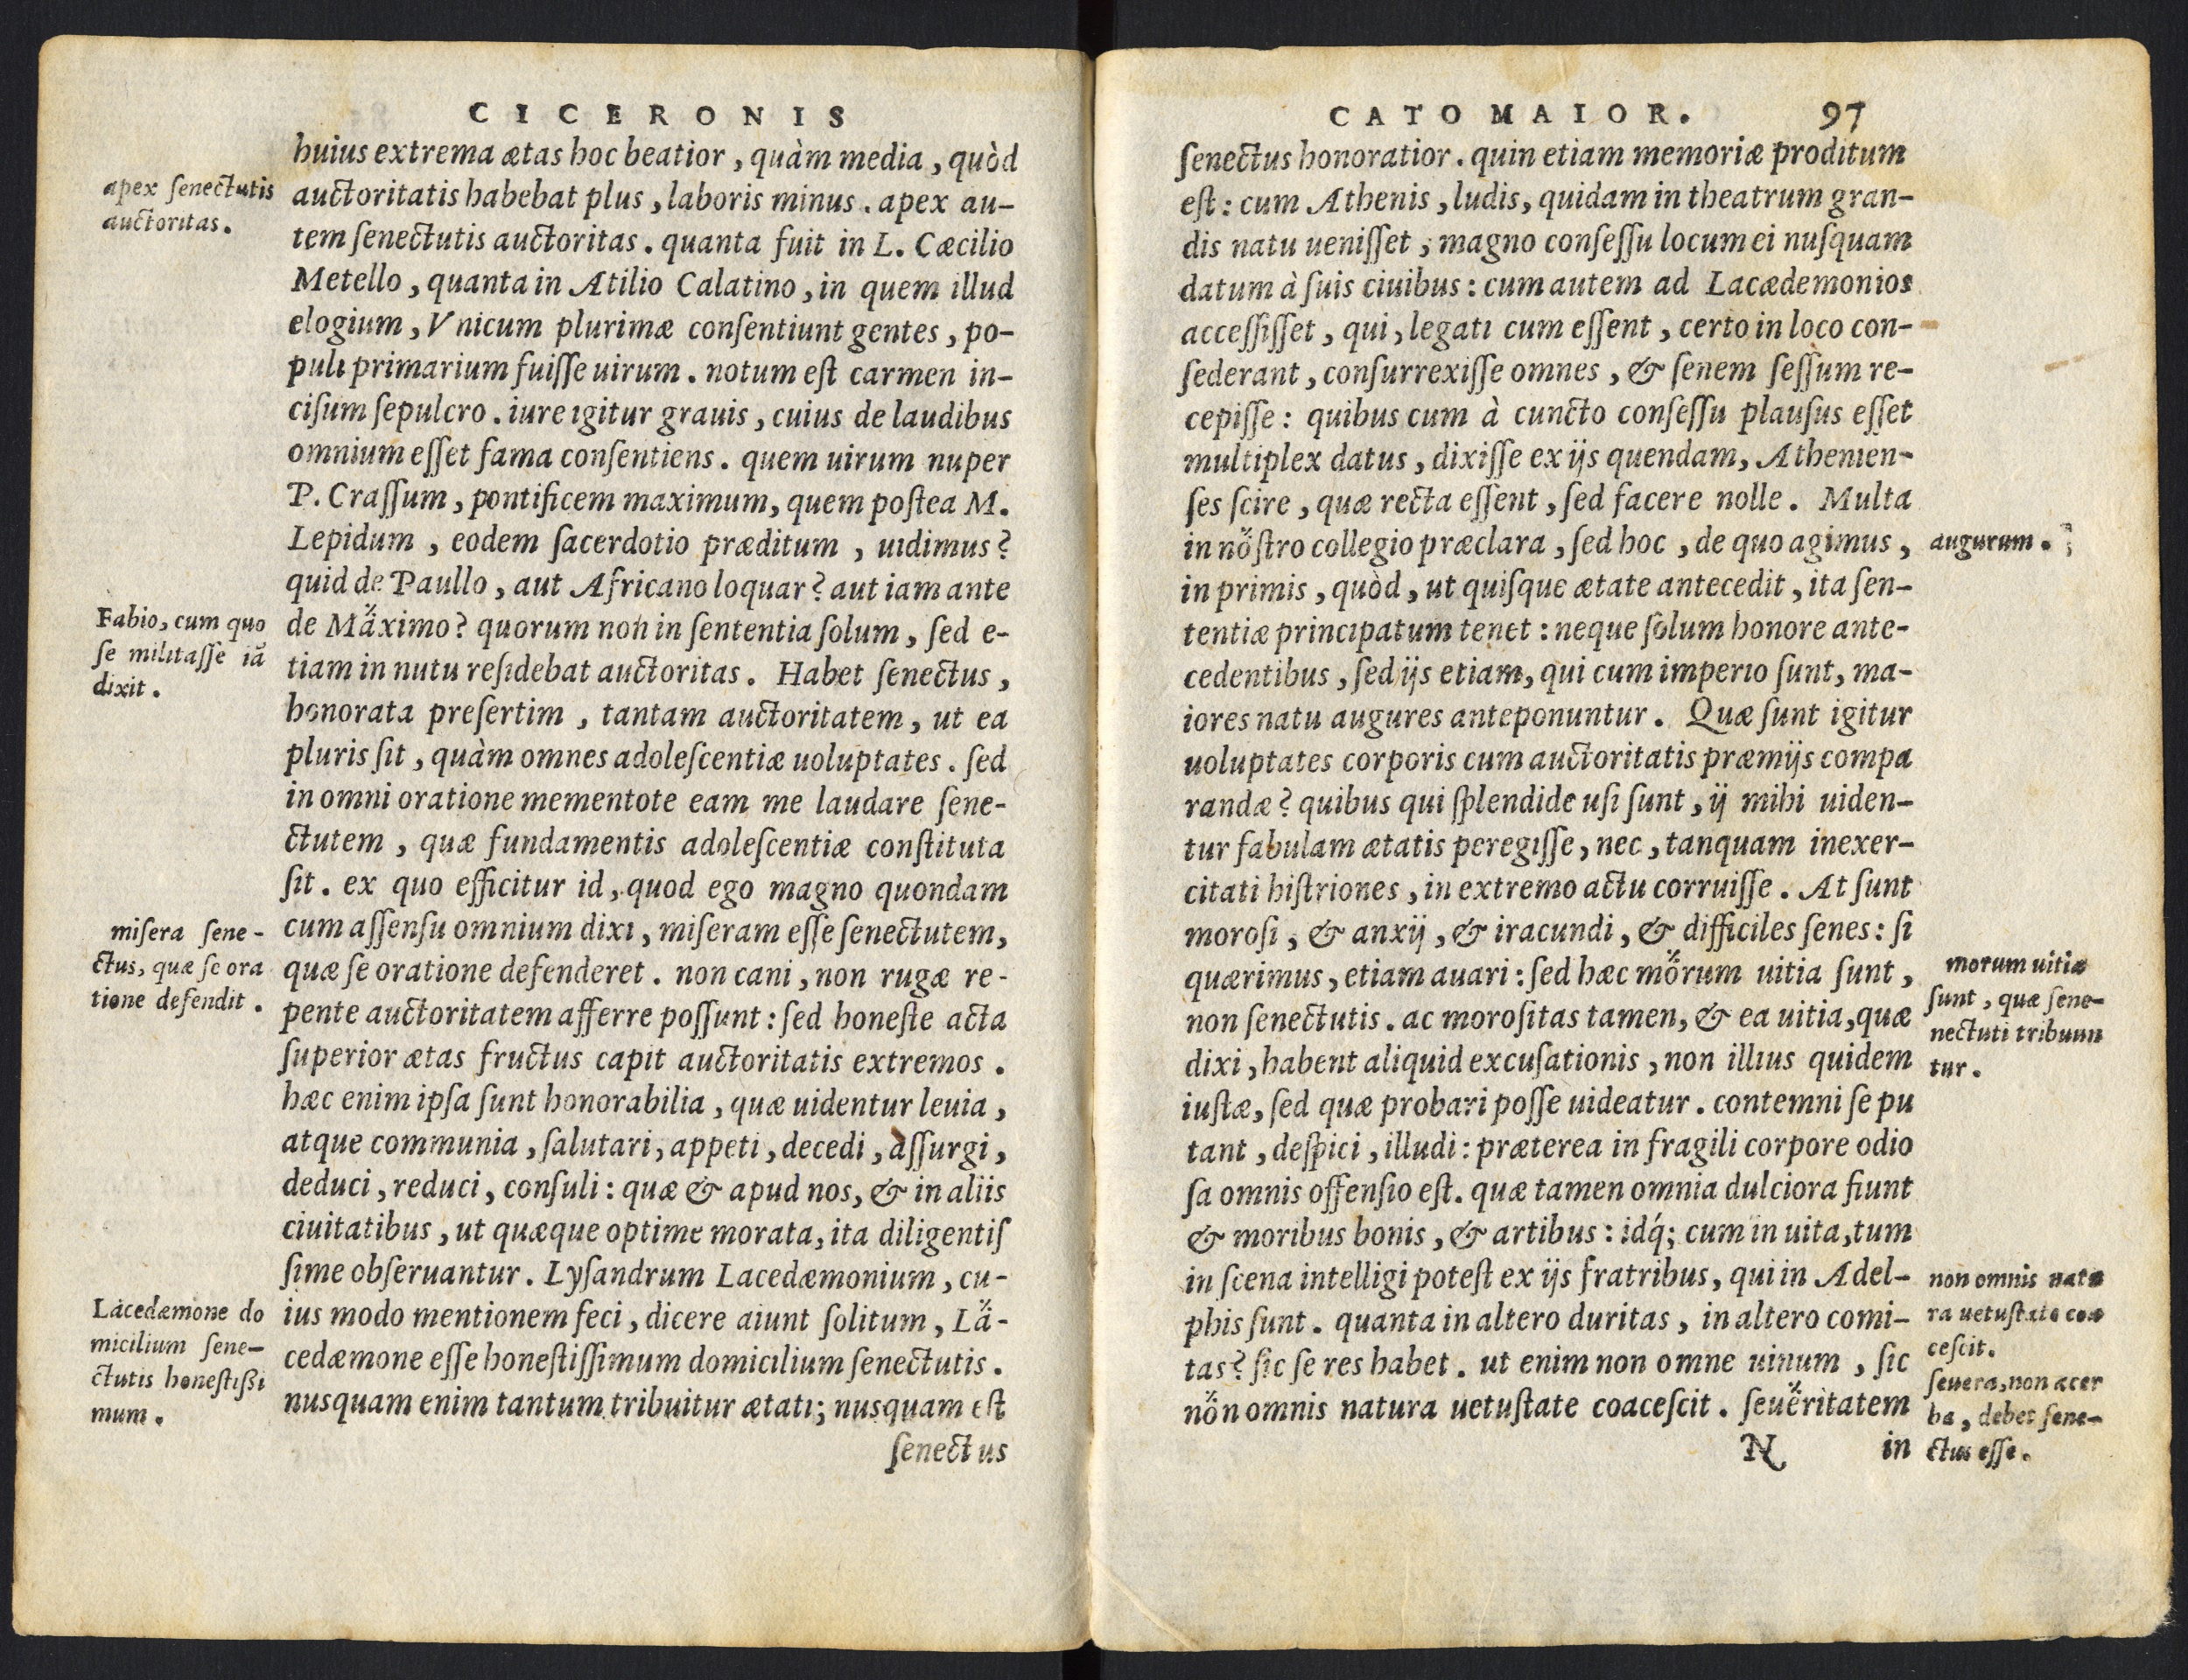 CICERONIS
apex ſenectutis
auctoritas.
Fabio, cum quo
ſe militaſſe iã
dixit.
miſera ſene-
ctus, quæ ſe ora
tione defendit.
Lacedæmone do
micilium ſene-
ctutis honeſtißi
mum.
huius extrema ætas hoc beatior, quàm media, quòd
auctoritatis habebat plus, laboris minus. apex au-
tem ſenectutis auctoritas. quanta fuit in L. Cæcilio
Metello, quanta in Atilio Calatino, in quem illud
elogium, Vnicum plurimæ conſentiunt gentes, po-
puli primarium fuiſſe uirum. notum eſt carmen in-
ciſum ſepulcro. iure igitur grauis, cuius de laudibus
omnium eſſet fama conſentiens. quem uirum nuper
P. Craſſum, pontificem maximum, quem poſtea M.
Lepidum, eodem ſacerdotio præditum, uidimus?
quid de Paullo, aut Africano loquar? aut iam ante
de Maximo? quorum non in ſententia ſolum, ſed e-
tiam in nutu reſidebat auctoritas. Habet ſenectus,
honorata preſertim, tantam auctoritatem, ut ea
pluris ſit, quàm omnes adoleſcentiæ uoluptates. ſed
in omni oratione mementote eam me laudare ſene-
ctutem, quæ fundamentis adoleſcentiæ conſtituta
ſit. ex quo efficitur id, quod ego magno quondam
cum aſſenſu omnium dixi, miſeram eſſe ſenectutem,
quæ ſe oratione defenderet. non cani, non rugæ re-
pente auctoritatem afferre poſſunt: ſed honeſte acta
ſuperior ætas fructus capit auctoritatis extremos.
hæc enim ipſa ſunt honorabilia, quæ uidentur leuia,
atque communia, ſalutari, appeti, decedi, aſſurgi,
deduci, reduci, conſuli: quæ & apud nos, & in aliis
ciuitatibus, ut quæque optime morata, ita diligentiſ
ſime obſeruantur. Lyſandrum Lacedæmonium, cu-
ius modo mentionem feci, dicere aiunt ſolitum, La-
cedæmone eſſe honeſtiſſimum domicilium ſenectutis.
nusquam enim tantum tribuitur ætati; nusquam eſt
ſenectus
CATO MAIOR. 97
ſenectus honoratior. quin etiam memoriæ proditum
eſt: cum Athenis, ludis, quidam in theatrum gran-
dis natu ueniſſet, magno conſeſſu locum ei nuſquam
datum à ſuis ciuibus: cum autem ad Lacædemonios
acceſſiſſet, qui, legati cum eſſent, certo in loco con-
ſederant, conſurrexiſſe omnes, & ſenem ſeſſum re-
cepiſſe: quibus cum à cuncto conſeſſu plauſus eſſet
multiplex datus, dixiſſe ex ijs quendam, Athenien-
ſes ſcire, quæ recta eſſent, ſed facere nolle. Multa
in noſtro collegio præclara, ſed hoc, de quo agimus,
in primis, quòd, ut quiſque ætate antecedit, ita ſen-
tentiæ principatum tenet: neque ſolum honore ante-
cedentibus, ſed ijs etiam, qui cum imperio ſunt, ma-
iores natu augures anteponuntur. Quæ ſunt igitur
uoluptates corporis cum auctoritatis præmijs compa
randæ? quibus qui ſplendide uſi ſunt, ij mihi uiden-
tur fabulam ætatis peregiſſe, nec, tanquam inexer-
citati hiſtriones, in extremo actu corruiſſe. At ſunt
moroſi, & anxij, & iracundi, & difficiles ſenes: ſi
quærimus, etiam auari: ſed hæc morum uitia ſunt,
non ſenectutis. ac moroſitas tamen, & ea uitia, quæ
dixi, habent aliquid excuſationis, non illius quidem
iuſtæ, ſed quæ probari poſſe uideatur. contemni ſe pu
tant, deſpici, illudi: præterea in fragili corpore odio
ſa omnis offenſio eſt. quæ tamen omnia dulciora fiunt
& moribus bonis, & artibus: idq́; cum in uita, tum
in ſcena intelligi poteſt ex ijs fratribus, qui in Adel-
phis ſunt. quanta in altero duritas, in altero comi-
tas? ſic ſe res habet. ut enim non omne uinum, ſic
non omnis natura uetuſtate coaceſcit. ſeueritatem
N in
augurum.
morum uitia
ſunt, quæ ſene-
nectuti tribuun
tur.
non omnis natu
ra uetuſtate coa
ceſcit.
ſeuera, non acer
ba, debet ſene-
ctus eſſe.